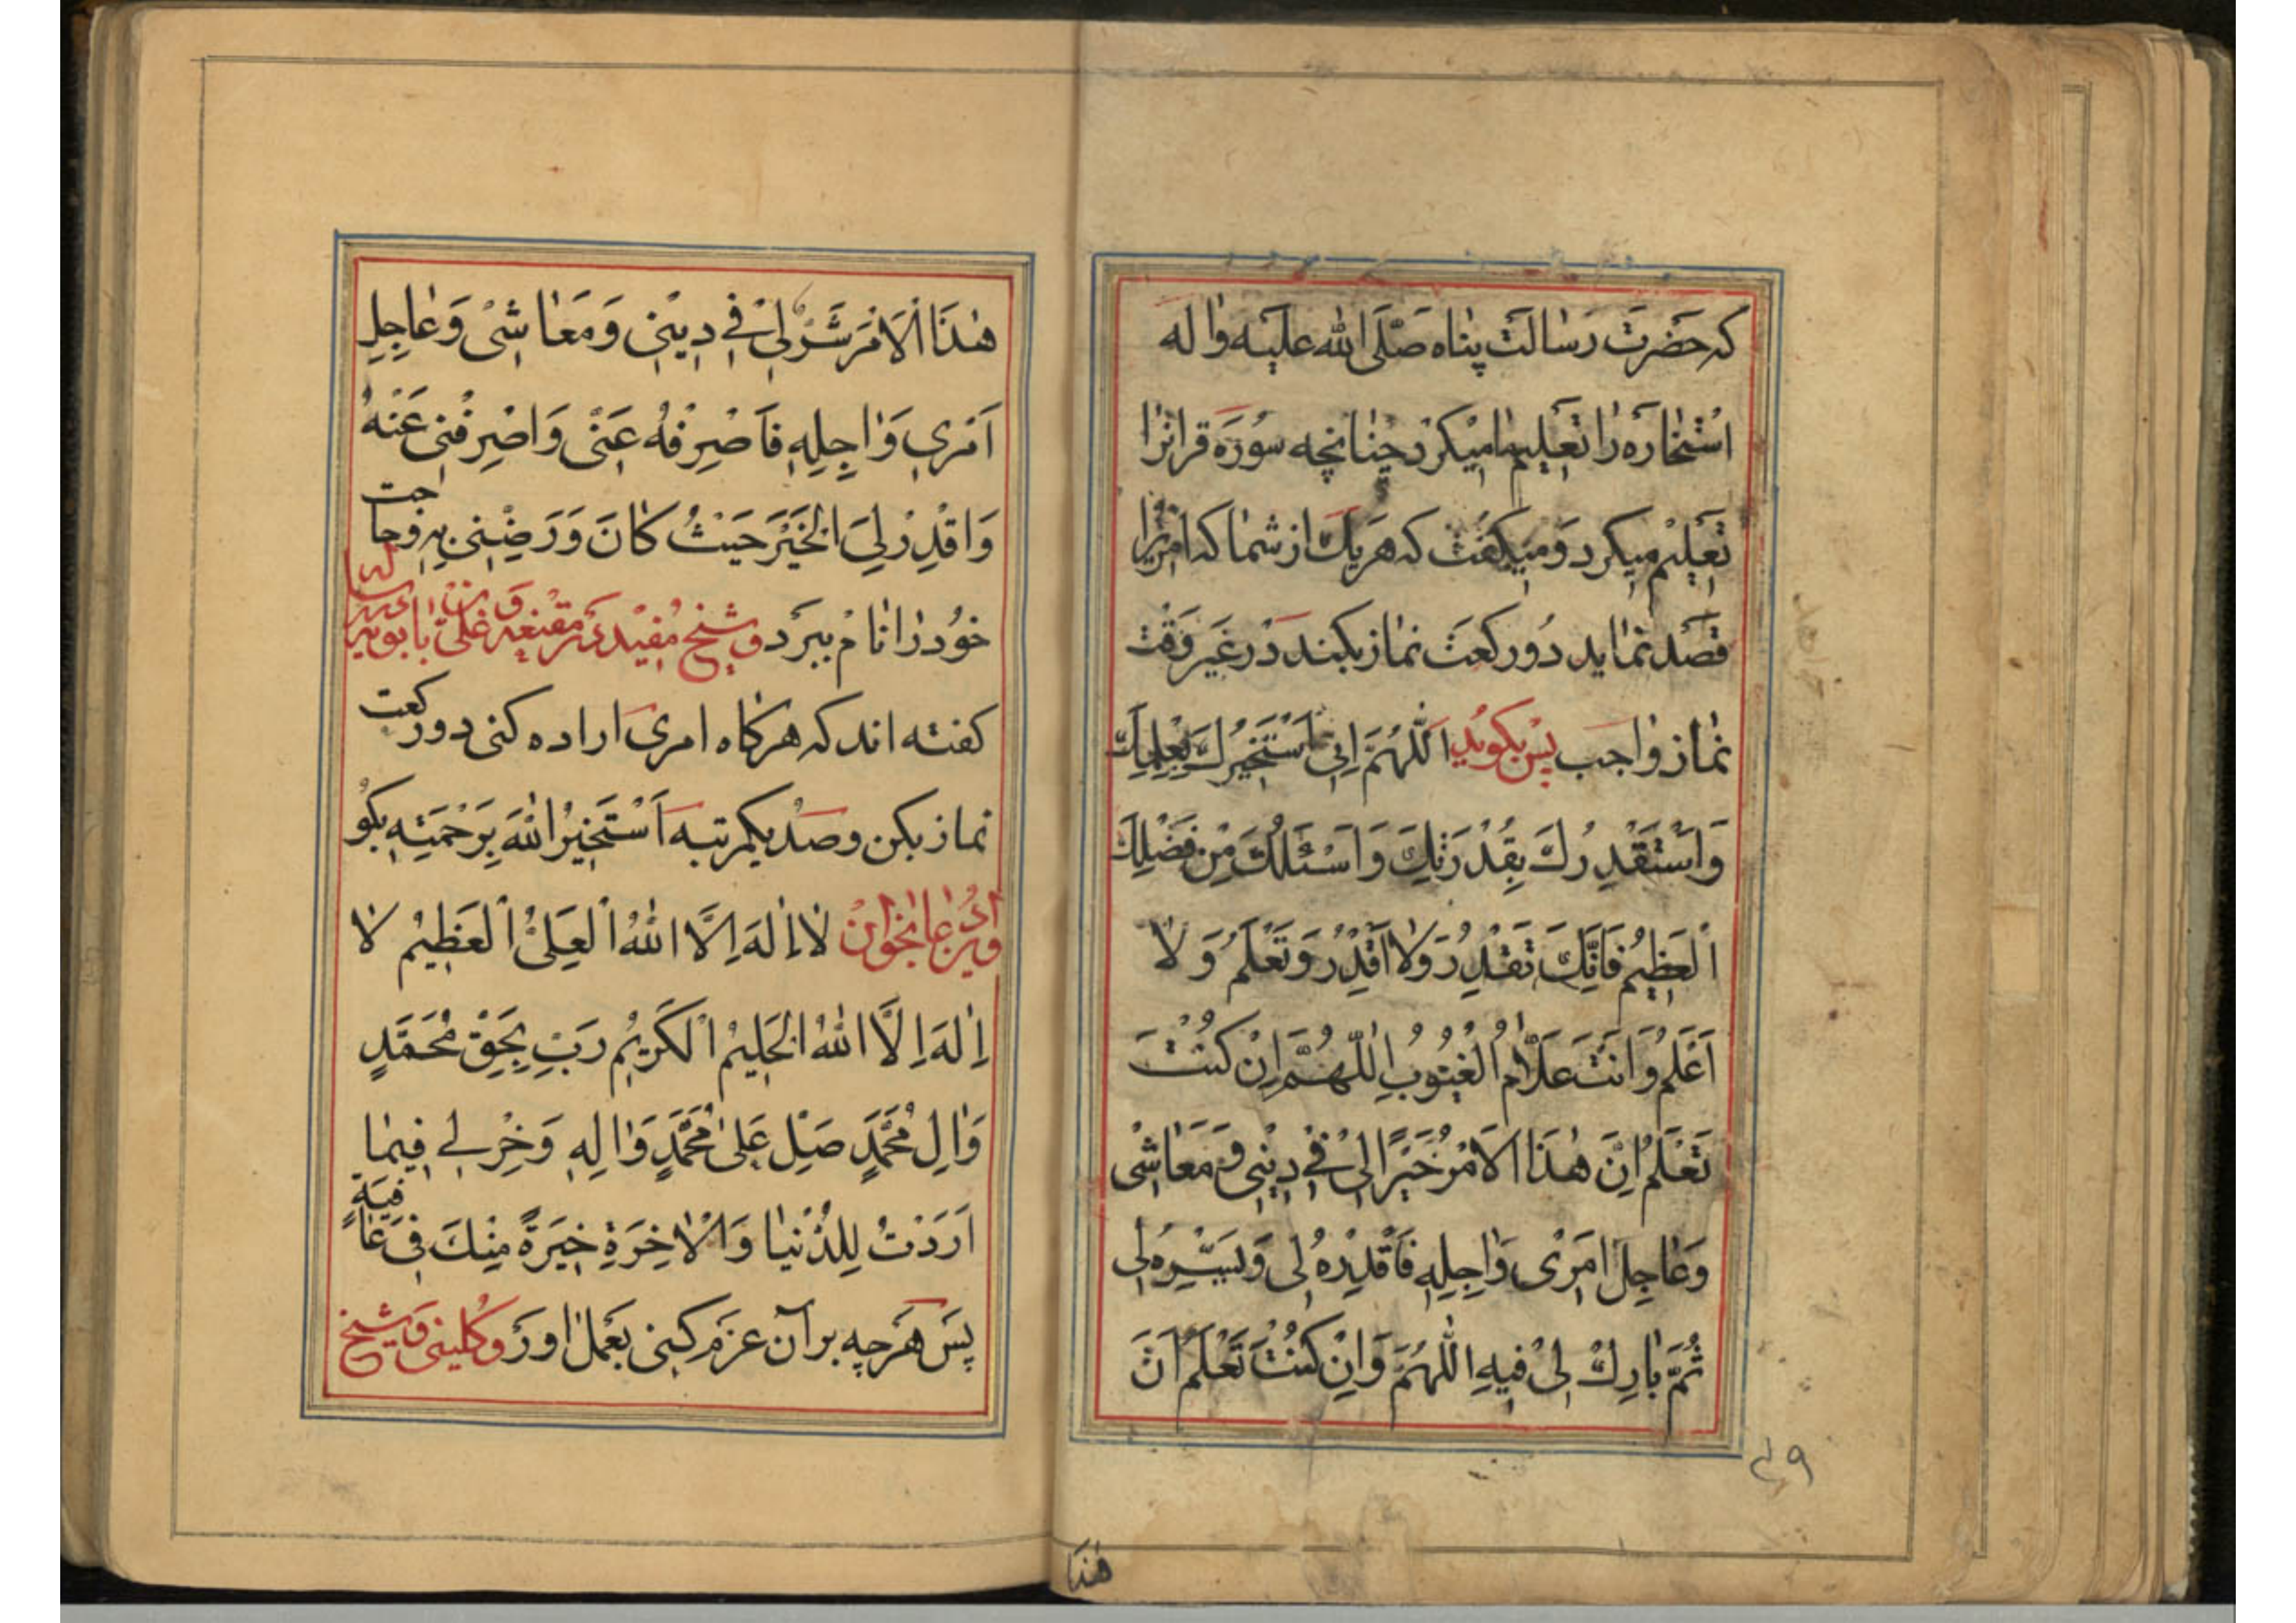 که حضرت رسالت پناه صلی الله علیه واله
استخاره را تعلیم ما میکرد چنانچه سوره قرانرا
تعلیم میکرد و میکفت که هر یک از شما که امریرا
قصد نماید دو رکعت نماز بکند در غیر وقت
نماز واجب پس بکوید اللهم انی استخیرک بعلمک
وَاَسْتَقْدِرُكَ بِقُدْرَتِكَ وَاَسْئَلُكَ مِنْ فَضْلِكَ
الْعَظِیمُ فَاِنَّكَ تَقْدِرُ وَلا اَقْدِرُ وَتَعْلَمُ وَلا
اَعْلَمُ وَاَنْتَ عَلاّمُ الْغُیُوبِ اللّهُمَّ اِنْ كُنْتَ
تَعْلَمُ اِنَّ هٰذَا الاَمْرُ خَیْرًا لِیْ فِی دِیْنِی وَمَعَاشِیْ
وَعَاجِلِ اَمْرِیْ وَاٰجِلِهِ فَاَقْدِرْهُ لِی وَیَسِّرْهُ لِی
ثُمَّ بَارِكْ لِیْ فِیهِ اللّهُمَّ وَاِنْ كُنْتَ تَعْلَمُ اَنَّ
۴۹
هٰذَا
هٰذَا الْاَمْرَ شَرٌّ لِیْ فِی دِیْنِی وَمَعَاشِیْ وَعَاجِلِ
اَمْرِی وَاٰجِلِهِ فَاَصْرِفْهُ عَنِّی وَاصْرِفْنِی عَنْهُ
وَاقْدِرْ لِیَ الْخَیْرَ حَیْثُ كَانَ وَرَضِّنِی بِهِ وحاجت
خود را نام ببرد و شیخ مفید در مقنعه و علی بابویه
کفته اند که هرکاه امری اراده کنی دو رکعت
نماز بکن و صد یکمرتبه اَسْتَخِیْرُ اللهَ بِرَحْمَتِهِ بکو
لا اِلٰهَ اِلَّا اللهُ الْعَلِیُّ الْعَظِیْمُ لا
اِلٰهَ اِلَّا اللهُ الْحَلِیْمُ الْكَرِیْمُ رَبِّ بِحَقِّ مُحَمَّدٍ
وَاٰلِ مُحَمَّدٍ صَلِّ عَلٰی مُحَمَّدٍ وَاٰلِهِ وَخِرْ لِی فِیمَا
اَرَدْتُ لِلدُّنْیَا وَالْاٰخِرَةِ خِیَرَةً مِنْكَ فِی عَافِیَةٍ
پس هرچه بر آن عزم کنی بعمل اور و کلینی و شیخ